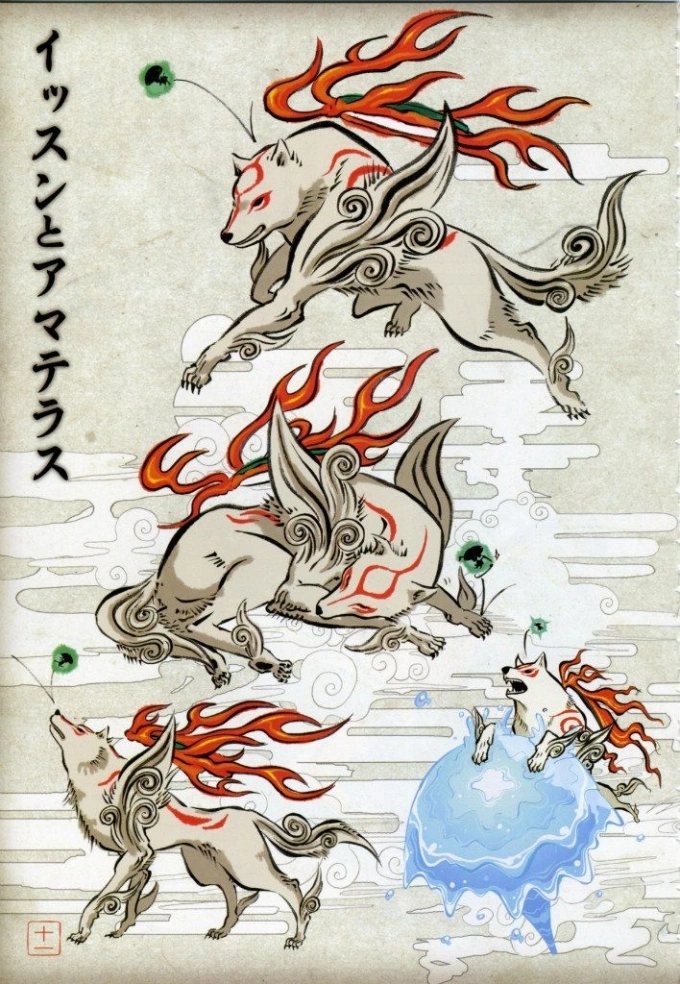 イッスンとアマテラス
十一